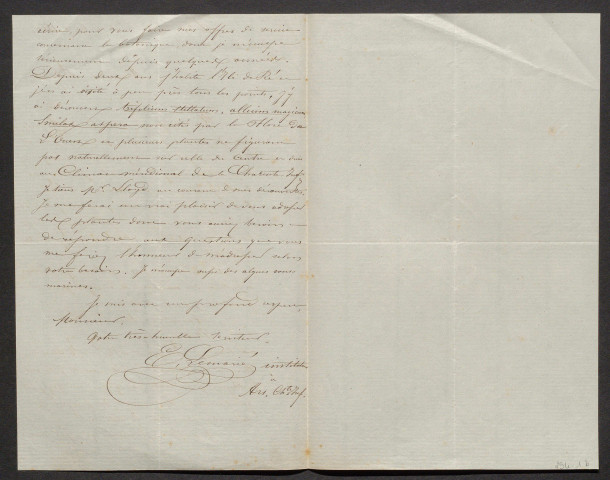 écrire pour vous faire mes offres de service
concernant la botanique dont je m'occupe
énormément depuis quelques années.
Depuis deux ans j'habite l'Ile de Ré
j'en ai visité à peu près tous les points, j'y
ai découvert trifolium stellatum, allium
Smilax aspera non cités par la flore de
l'Ouest ; plusieurs plantes ne figurant
pas naturellement sur celle du centre
au Climat méridional de la Charente Infr
Je tiens Mr Lloyd au courant de mes découvertes
Je me ferai un vrai plaisir de vous adresser
les plantes dont vous auriez besoin
de répondre aux questions que vous
me feriez l'honneur de m'adresser selon
votre besoin. Je m'occupe aussi des algues
marines.
Je suis avec un profond respect,
Monsieur,
Votre très humble serviteur.
E. Lemarié, instituteur
à
Ars, Ch. Inf.